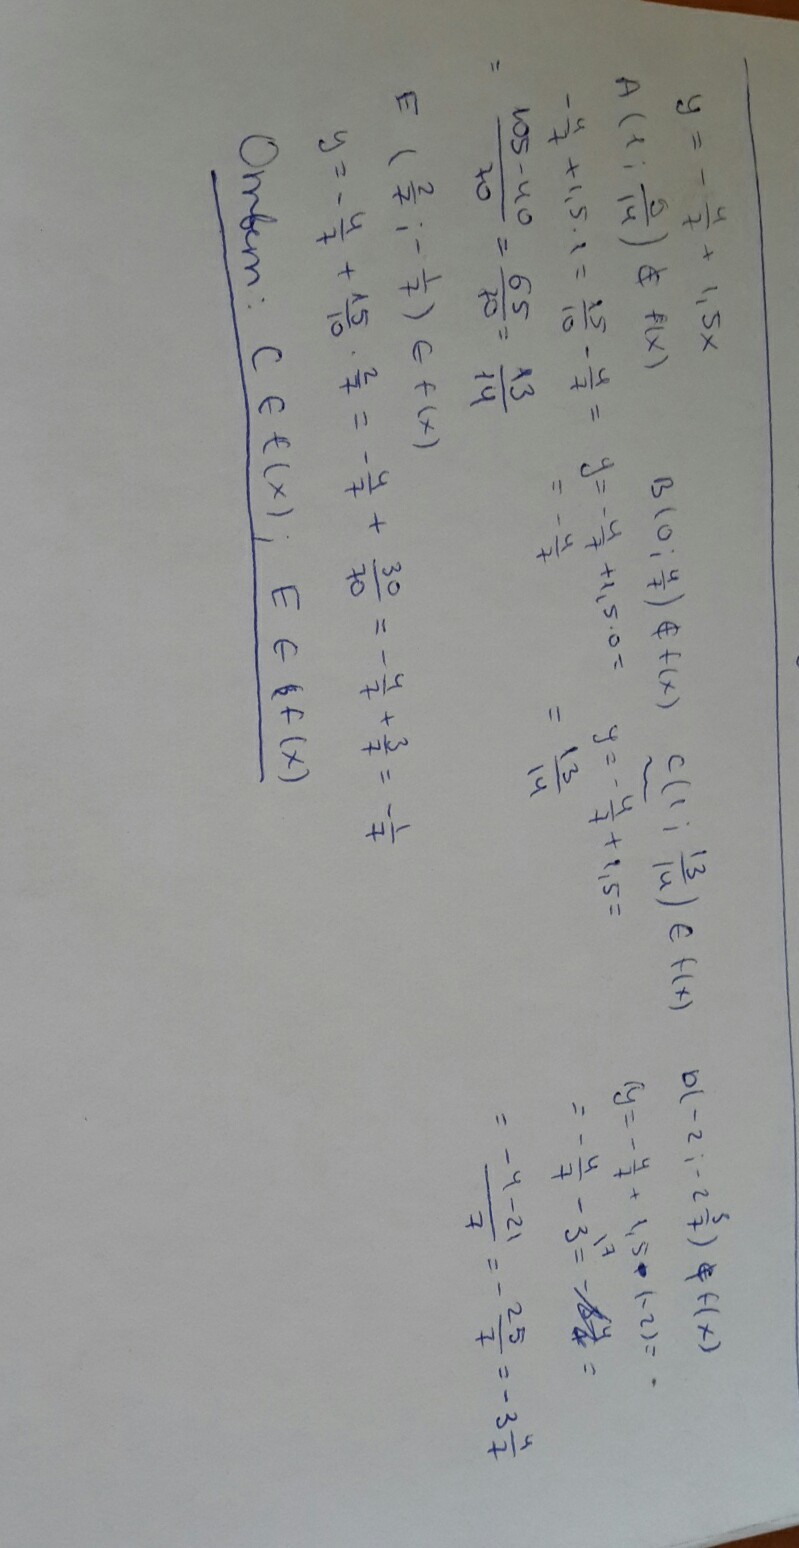 y = - 4/7 + 1,5x
A (1; /14) ∉ f(x) B(0; 4/7) ∉ f(x) C(1; 13/14) ∈ f(x) D(-2; -2 3/7) ∉ f(x)
- 4/7 + 1,5·1 = 15/10 - 4/7 = y = - 4/7 + 1,5·0 = y = - 4/7 + 1,5 = y = - 4/7 + 1,5·(-2) =
= (105-40)/70 = 65/70 = 13/14 = - 4/7 = 13/14 = - 4/7 - 3 =
= (-4-21)/7 = - 25/7 = -3 4/7
E (2/7; - 1/7) ∈ f(x)
y = - 4/7 + 15/10 · 2/7 = - 4/7 + 30/70 = - 4/7 + 3/7 = - 1/7
Ответ: C ∈ f(x); E ∈ f(x)